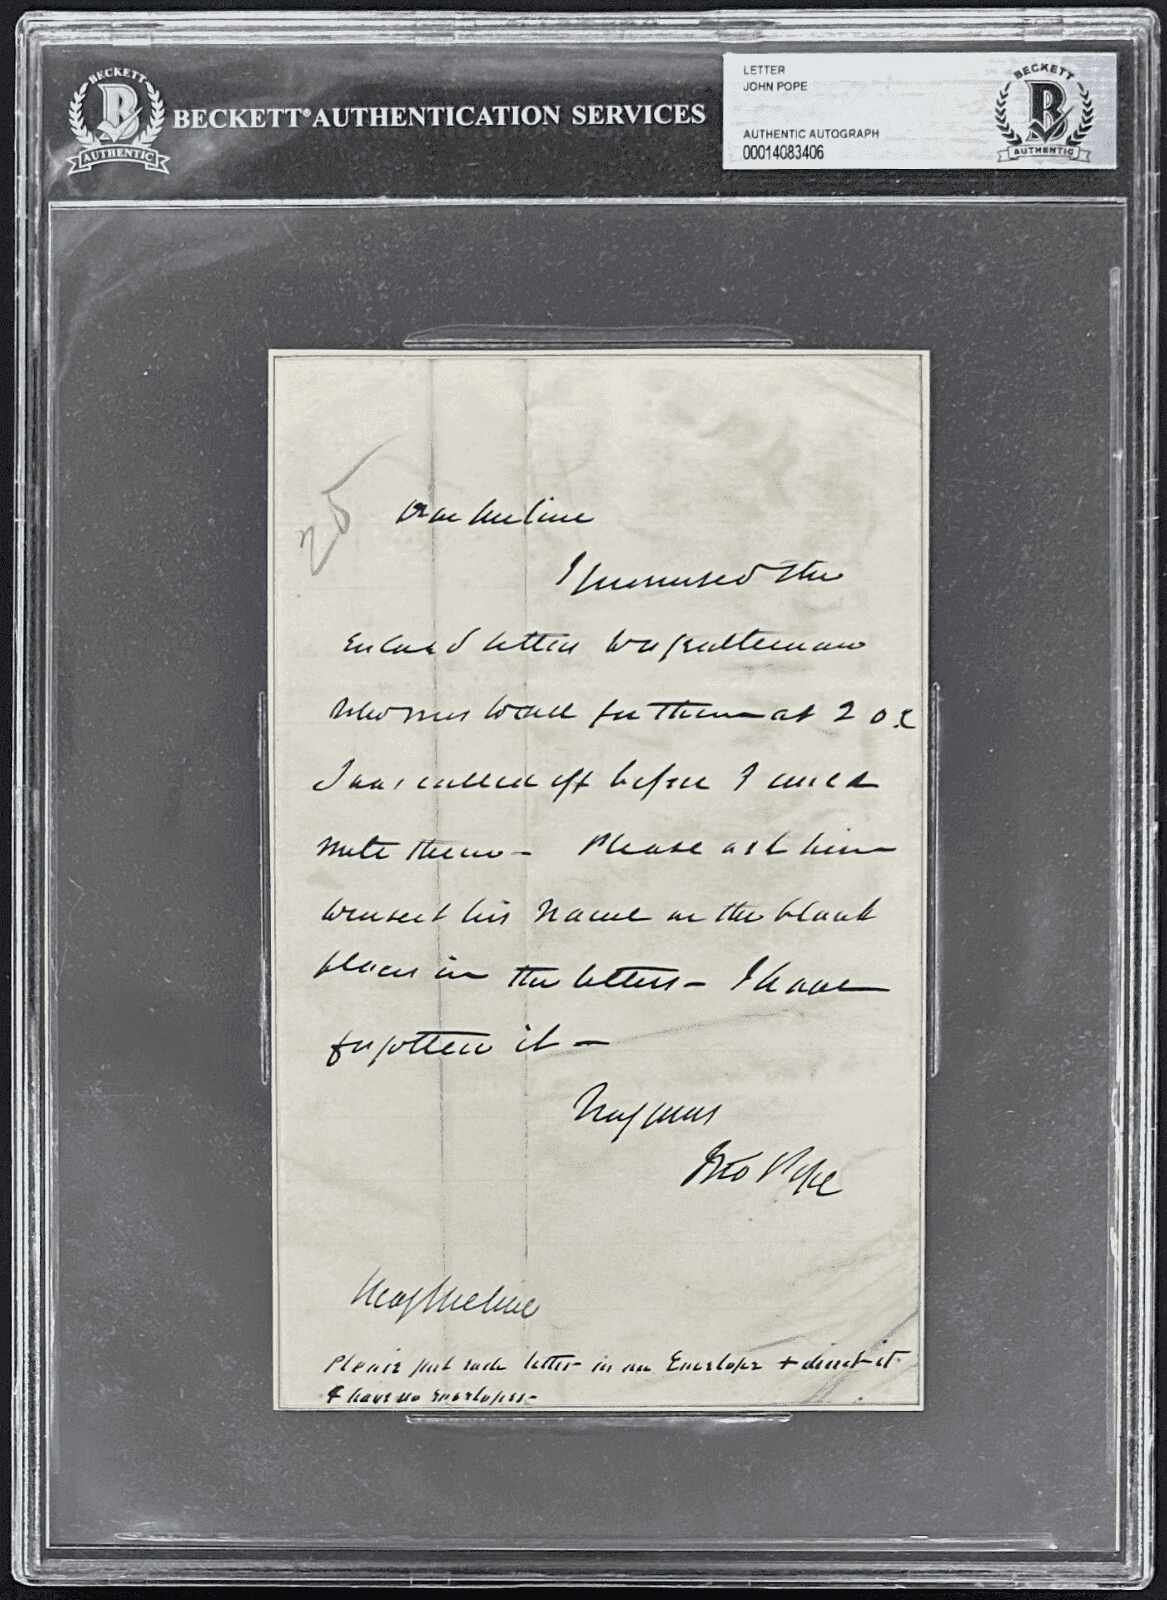 BECKETT
B
AUTHENTIC
BECKETT® AUTHENTICATION SERVICES
LETTER
JOHN POPE
AUTHENTIC AUTOGRAPH
00014083406
BECKETT
B
AUTHENTIC
20
Dear Meline
I promised the
Enclosed letters to a gentleman
who was to call for them at 2 o.c
I was called off before I could
write them – Please ask him
to insert his name in the blank
places in the letters – I have
forgotten it –
Truly yours
Jno Pope
Maj Meline
Please put each letter in an Envelope + direct it
I have no envelopes –